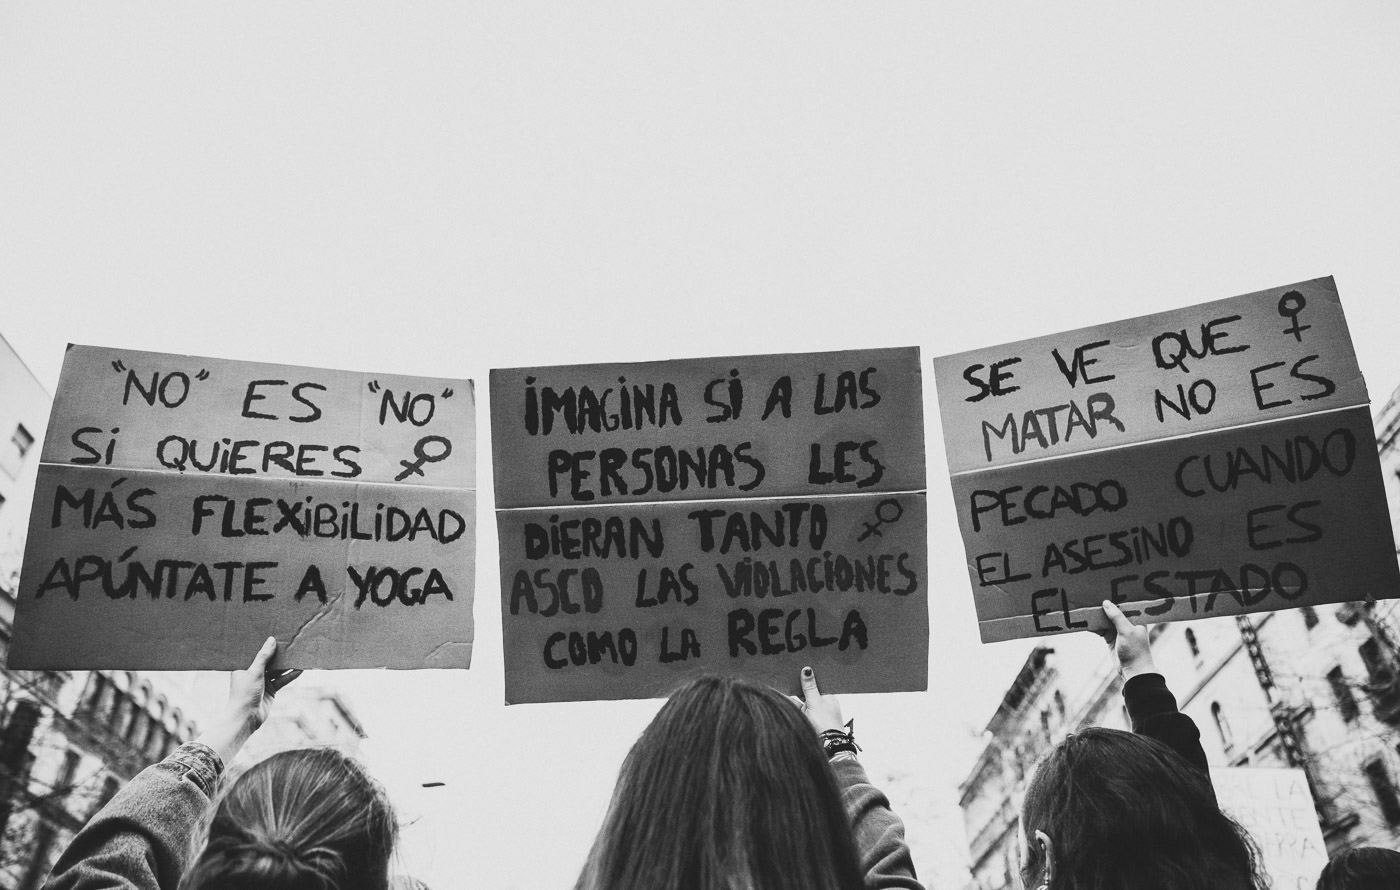 "NO" ES "NO"
Si QUiERES
MÁS FLEXiBiLiDAD
APÚNTATE A YOGA
iMAGiNA Si A LAS
PERSONAS LES
DiERAN TANTO
ASCO LAS ViOLACiONES
COMO LA REGLA
SE VE QUE
MATAR NO ES
PECADO CUANDO
EL ASESiNO ES
EL ESTADO